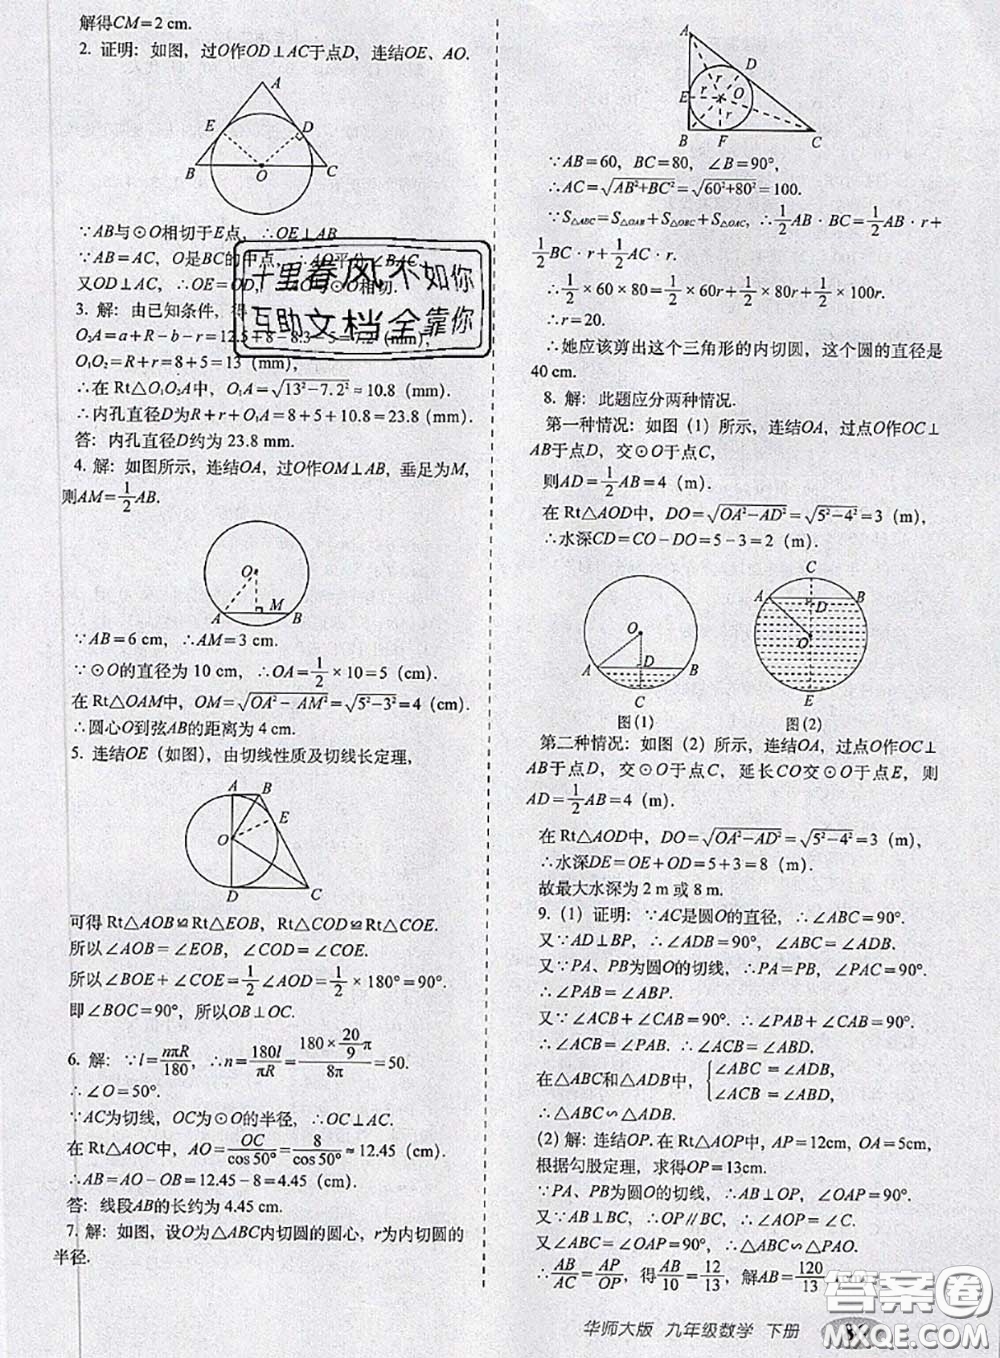 解得CM=2 cm.
2. 证明：如图，过O作OD⊥AC于点D，连结OE、AO.
A
E
D
B
O
C
∵AB与⊙O相切于E点，∴OE⊥AB
∵AB=AC，O是BC的中点，∴AO平分∠BAC.
又OD⊥AC，∴OE=OD，与⊙O相切.
十里春风不如你
互助文档全靠你
3. 解：由已知条件，得
O₂A=a+R-b-r=12.5+8-8.3-5=7.2（mm），
O₁O₂=R+r=8+5=13（mm），
∴在Rt△O₁O₂A中，O₁A=√(13²-7.2²)≈10.8（mm）.
∴内孔直径D为R+r+O₁A=8+5+10.8=23.8（mm）.
答：内孔直径D约为23.8 mm.
4. 解：如图所示，连结OA，过O作OM⊥AB，垂足为M，
则AM=1/2AB.
O
M
A
B
∵AB=6 cm，∴AM=3 cm.
∵⊙O的直径为10 cm，∴OA=1/2×10=5（cm）.
在Rt△OAM中，OM=√(OA²-AM²)=√(5²-3²)=4（cm）.
∴圆心O到弦AB的距离为4 cm.
5. 连结OE（如图），由切线性质及切线长定理，
A
B
E
O
D
C
可得Rt△AOB≌Rt△EOB，Rt△COD≌Rt△COE.
所以∠AOB=∠EOB，∠COD=∠COE.
所以∠BOE+∠COE=1/2∠AOD=1/2×180°=90°.
即∠BOC=90°，所以OB⊥OC.
6. 解：∵l=nπR/180，∴n=180l/πR=(180×20/9π)/8π=50.
∴∠O=50°.
∵AC为切线，OC为⊙O的半径，∴OC⊥AC.
在Rt△AOC中，AO=OC/cos50°=8/cos50°≈12.45（cm）
∴AB=AO-OB=12.45-8=4.45（cm）.
答：线段AB的长约为4.45 cm.
7. 解：如图，设O为△ABC内切圆的圆心，r为内切圆的
半径.
A
D
r
r
O
E
r
B
F
C
∵AB=60，BC=80，∠B=90°，
∴AC=√(AB²+BC²)=√(60²+80²)=100.
∵S△ABC=S△OAB+S△OBC+S△OAC，∴1/2AB·BC=1/2AB·r+
1/2BC·r+1/2AC·r.
∴1/2×60×80=1/2×60r+1/2×80r+1/2×100r.
∴r=20.
∴她应该剪出这个三角形的内切圆，这个圆的直径是
40 cm.
8. 解：此题应分两种情况.
第一种情况：如图（1）所示，连结OA，过点O作OC⊥
AB于点D，交⊙O于点C，
则AD=1/2AB=4（m）.
在Rt△AOD中，DO=√(OA²-AD²)=√(5²-4²)=3（m），
∴水深CD=CO-DO=5-3=2（m）.
O
A
D
B
C
图(1)
C
A
D
B
O
E
图(2)
第二种情况：如图（2）所示，连结OA，过点O作OC⊥
AB于点D，交⊙O于点C，延长CO交⊙O于点E，则
AD=1/2AB=4（m）.
在Rt△AOD中，DO=√(OA²-AD²)=√(5²-4²)=3（m）
∴水深DE=OE+OD=5+3=8（m）.
故最大水深为2 m或8 m.
9.（1）证明：∵AC是圆O的直径，∴∠ABC=90°.
又∵AD⊥BP，∴∠ADB=90°，∠ABC=∠ADB.
又∵PA、PB为圆O的切线，∴PA=PB，∠PAC=90°.
∴∠PAB=∠ABP.
又∵∠ACB+∠CAB=90°. ∴∠PAB+∠CAB=90°.
∴∠ACB=∠PAB. ∴∠ACB=∠ABD.
在△ABC和△ADB中，{∠ABC=∠ADB, ∠ACB=∠ABD,
∴△ABC∽△ADB.
(2)解：连结OP. 在Rt△AOP中，AP=12cm，OA=5cm，
根据勾股定理，求得OP=13cm.
∵PA、PB为圆O的切线，∴AB⊥OP，∠OAP=90°.
又∵AB⊥BC，∴OP∥BC，∴∠AOP=∠C.
又∵∠ABC=∠OAP=90°，∴△ABC∽△PAO.
∴AB/AC=AP/OP，得AB/10=12/13，解AB=120/13
华师大版 九年级数学 下册
答案圈
MXQE.COM